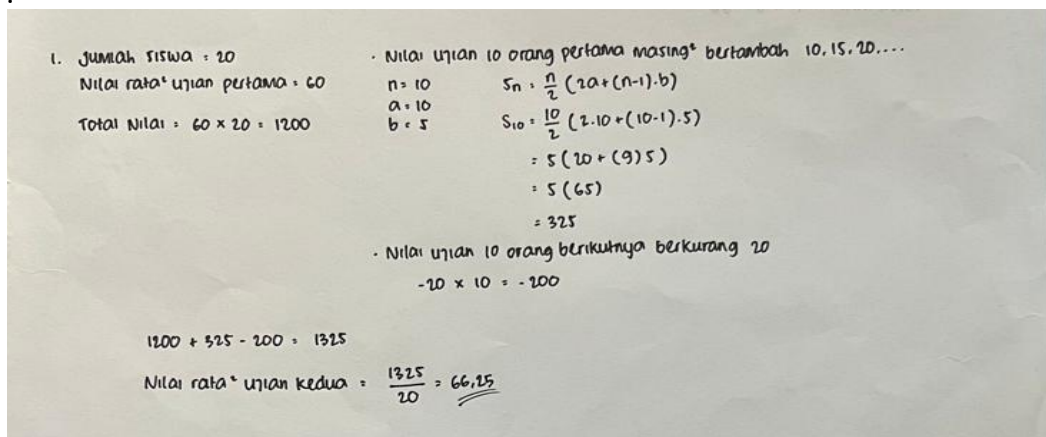 1. Jumlah siswa = 20
Nilai rata² ujian pertama = 60
Total Nilai = 60 × 20 = 1200
· Nilai ujian 10 orang pertama masing² bertambah 10, 15, 20, ....
n = 10
a = 10
b = 5
Sn = n/2 (2a + (n-1).b)
S10 = 10/2 (2.10 + (10-1).5)
= 5 (20 + (9) 5)
= 5 (65)
= 325
· Nilai ujian 10 orang berikutnya berkurang 20
-20 × 10 = -200
1200 + 325 - 200 = 1325
Nilai rata² ujian kedua = 1325/20 = 66,25